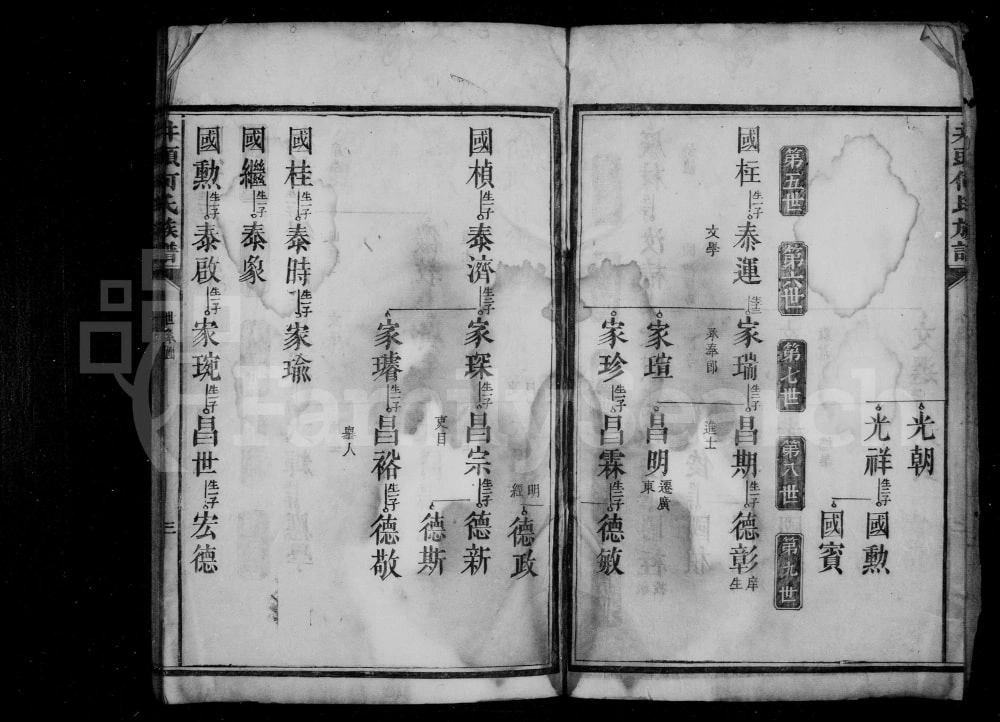 光朝
光祥 生二子 國勳
國賓
第五世 第六世 第七世 第八世 第九世
國柱 生一子 泰運 生三子 家瑞 生二子 昌期 生一子 德彰 庠生
文學
承奉郎
進士
家瑄 昌明 遷廣東
家珍 生一子 昌霖 生二子 德敏
德政 明經
國楨 生一子 泰濟 生二子 家琛 生一子 昌宗 生二子 德新
吏目
德斯
家璿 生一子 昌裕 生一子 德敬
舉人
國桂 生一子 泰時 生一子 家瑜
國繼 生一子 泰象
國勲 生一子 泰啟 生一子 家琬 生一子 昌世 生一子 宏德
井頭何氏族譜
三
FamilySearch